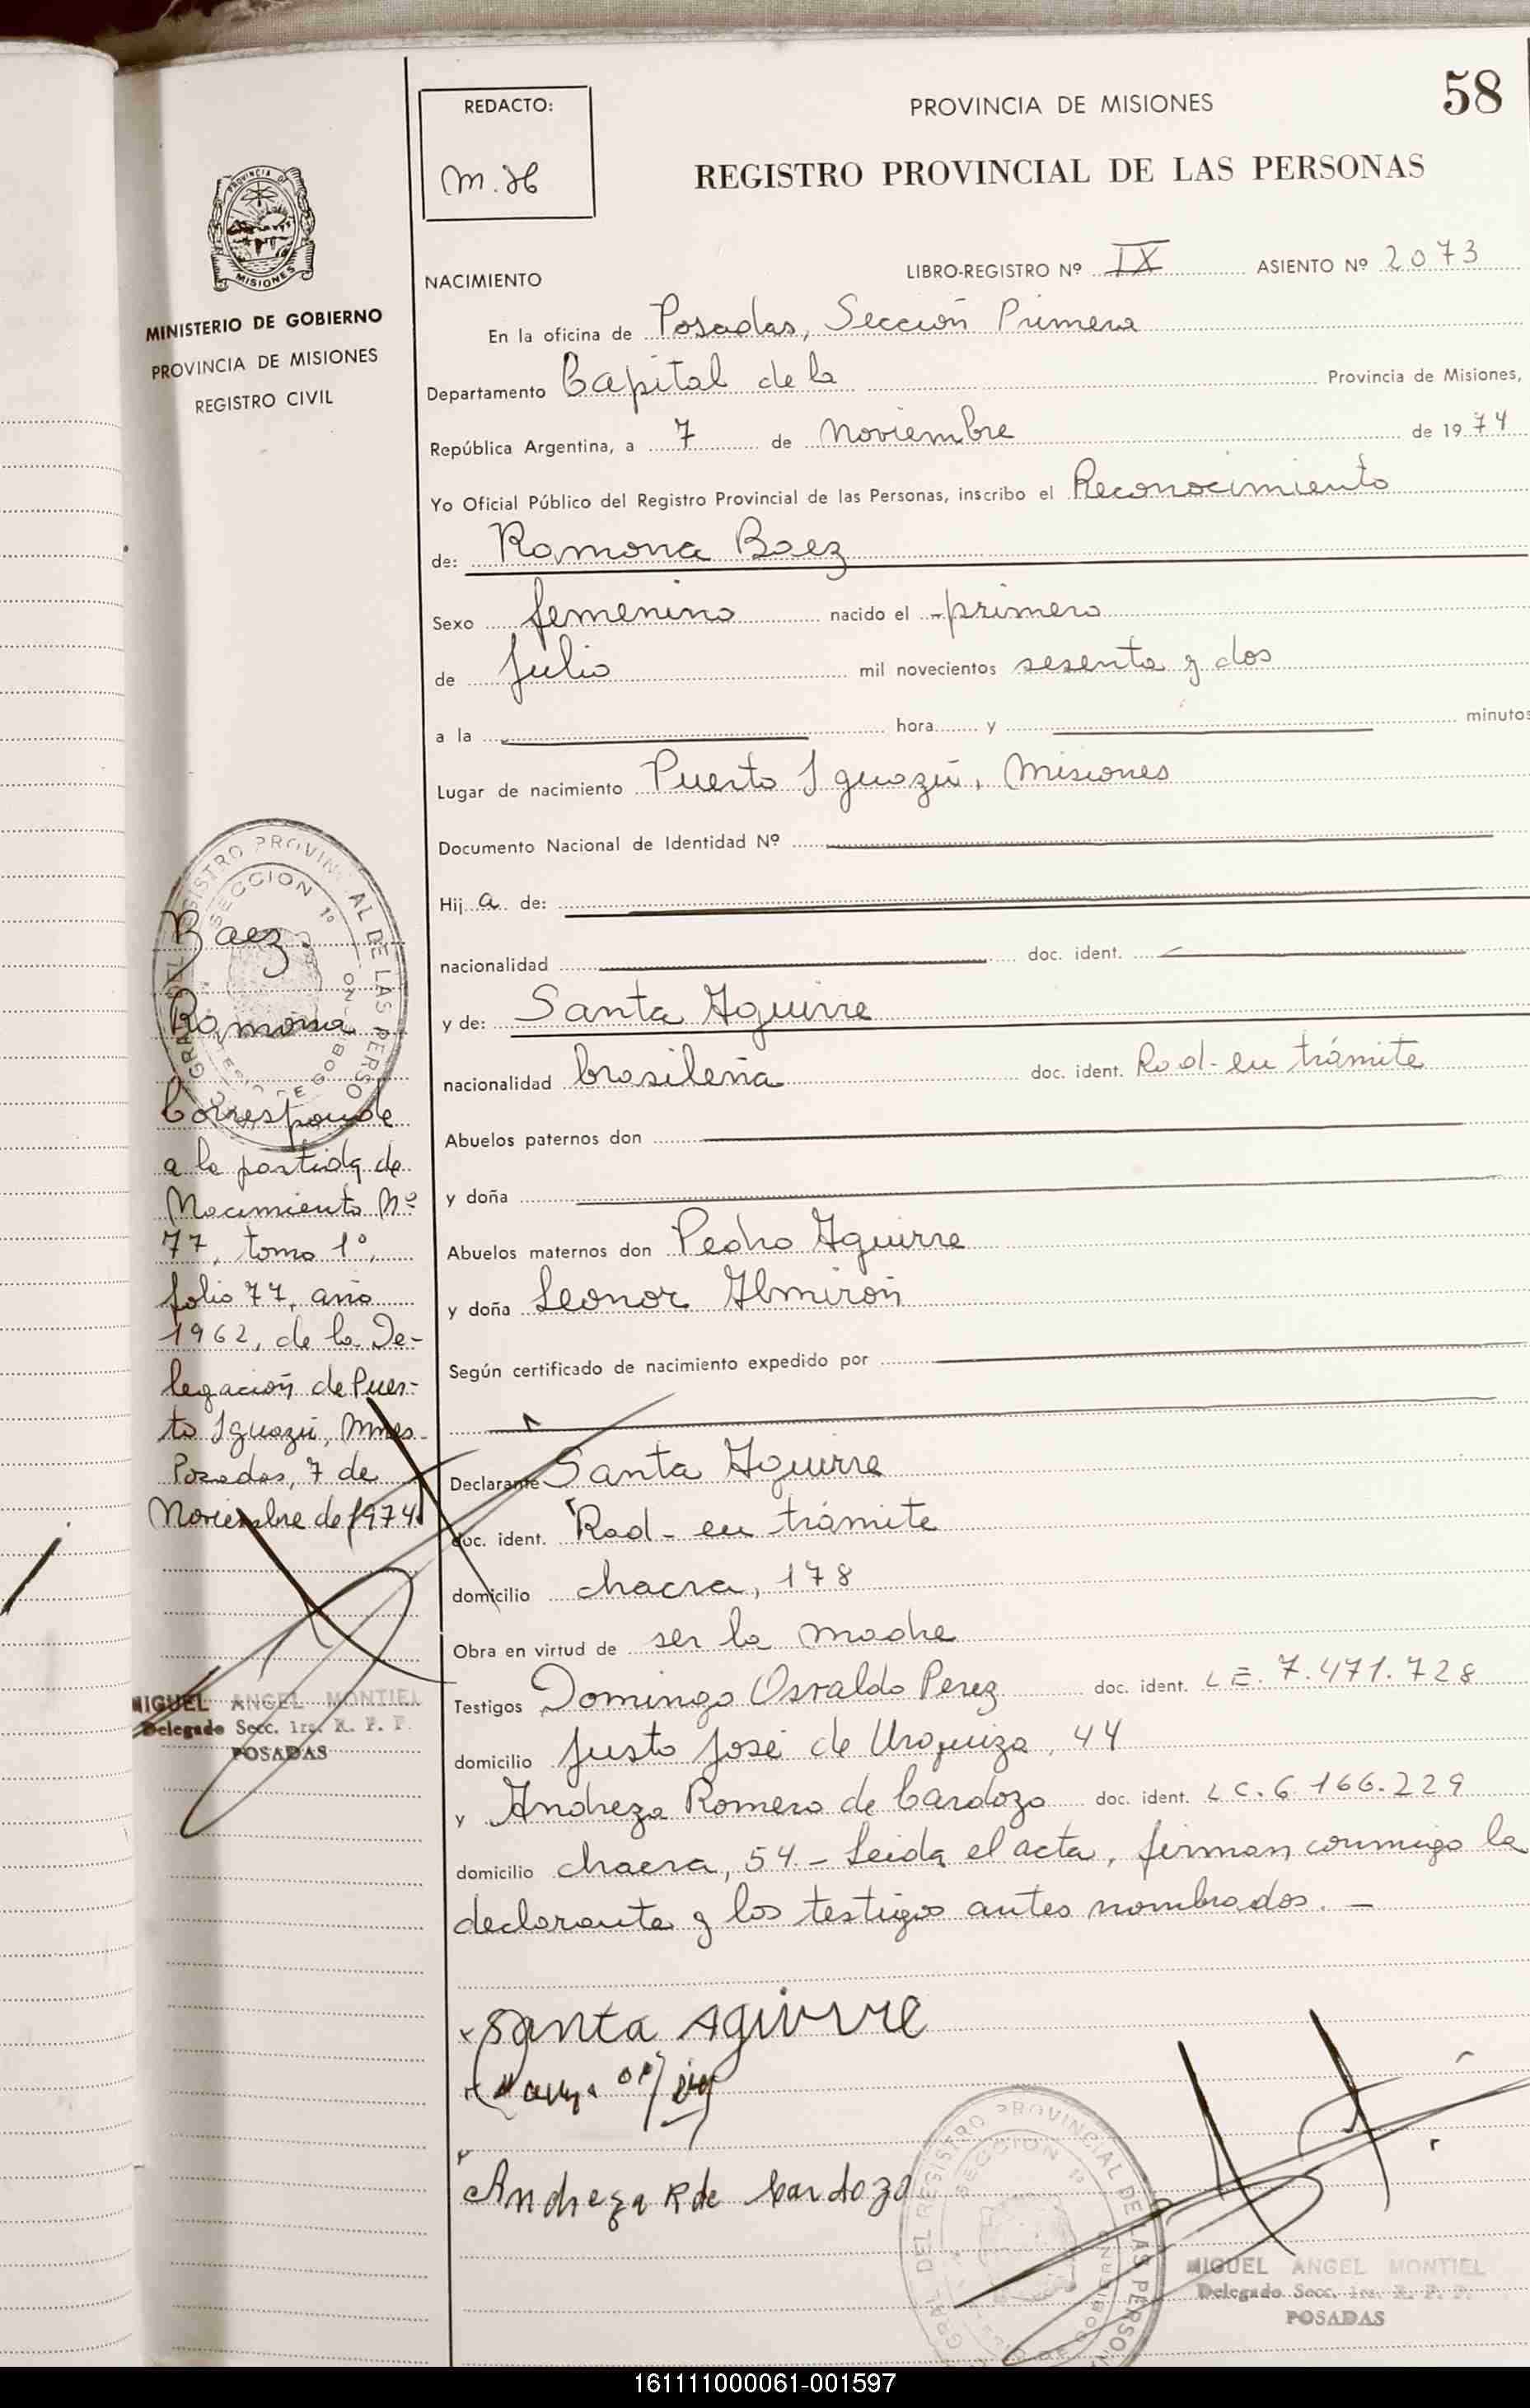 58
REDACTO:
M. H
PROVINCIA DE MISIONES
REGISTRO PROVINCIAL DE LAS PERSONAS
MISIONES
MINISTERIO DE GOBIERNO
PROVINCIA DE MISIONES
REGISTRO CIVIL
NACIMIENTO
LIBRO-REGISTRO Nº IX ASIENTO Nº 2073
En la oficina de Posadas, Sección Primera
Departamento Capital de la Provincia de Misiones,
República Argentina, a 7 de Noviembre de 1974
Yo Oficial Público del Registro Provincial de las Personas, inscribo el Reconocimiento
de: Ramona Baez
Sexo femenino nacido el primero
de Julio mil novecientos sesenta y dos
a la hora y minutos
Lugar de nacimiento Puerto Iguazú, Misiones
Documento Nacional de Identidad Nº
Hij a de:
nacionalidad doc. ident.
y de: Santa Aguirre
nacionalidad brasileña doc. ident. Rad- en trámite
Abuelos paternos don
y doña
Abuelos maternos don Pedro Aguirre
y doña Leonor Almirón
Según certificado de nacimiento expedido por
Declarante Santa Aguirre
doc. ident. Rad- en trámite
domicilio chacra, 178
Obra en virtud de ser la madre
Testigos Domingo Osvaldo Perez doc. ident. LE. 7.471.728
domicilio Justo José de Urquiza, 44
y Andreza Romero de Cardozo doc. ident. LC. 6.166.229
domicilio chacra, 54 - Leida el acta, firman conmigo la
declarante y los testigos antes nombrados. -
Baez
Ramona
Corresponde
a la partida de
Nacimiento Nº
77, tomo 1º,
folio 77, año
1962, de la De-
legación de Puer-
to Iguazú, Mnes-
Posadas, 7 de
Noviembre de 1974
MIGUEL ANGEL MONTIEL
Delegado Secc. 1ra. R. P. P.
POSADAS
Santa Aguirre
Andreza R de Cardozo
MIGUEL ANGEL MONTIEL
Delegado Secc. 1ra. R. P. P.
POSADAS
161111000061-001597